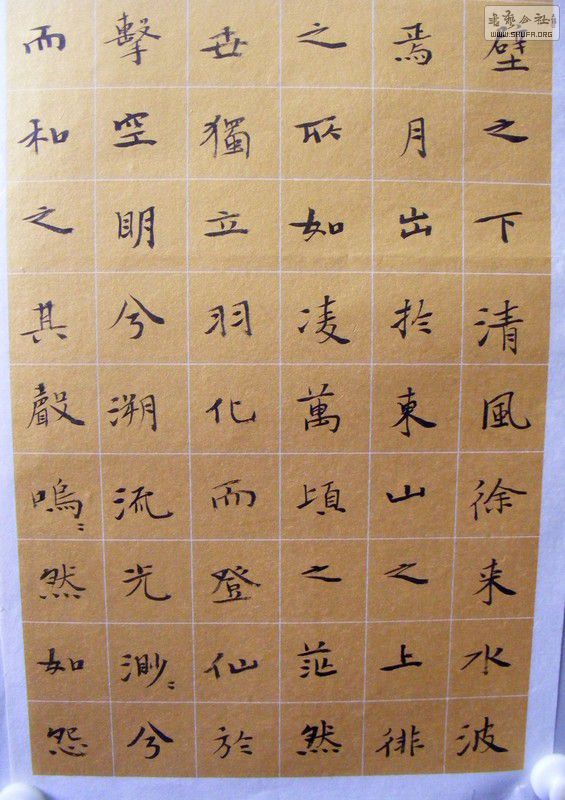 壁之下清風徐来水波
焉月出於東山之上徘
之所如凌萬頃之茫然
世獨立羽化而登仙於
擊空明兮溯流光渺〻兮
而和之其聲嗚〻然如怨
WWW.SHUFA.ORG